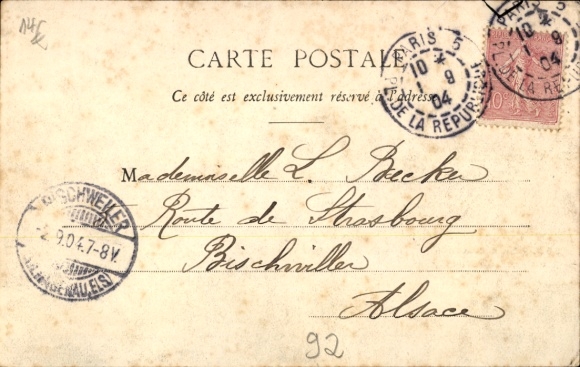 CARTE POSTALE
Ce côté est exclusivement réservé à l'adresse
PARIS 5
10
1 9
04
PL. DE LA REPUBLIQUE
PARIS 5
10
1 9
04
PL. DE LA REPUBLIQUE
10
Mademoiselle L. Becker
Route de Strasbourg
Bischviller
Alsace
BISCHWEILER
-2.9.04.7-8V.
92